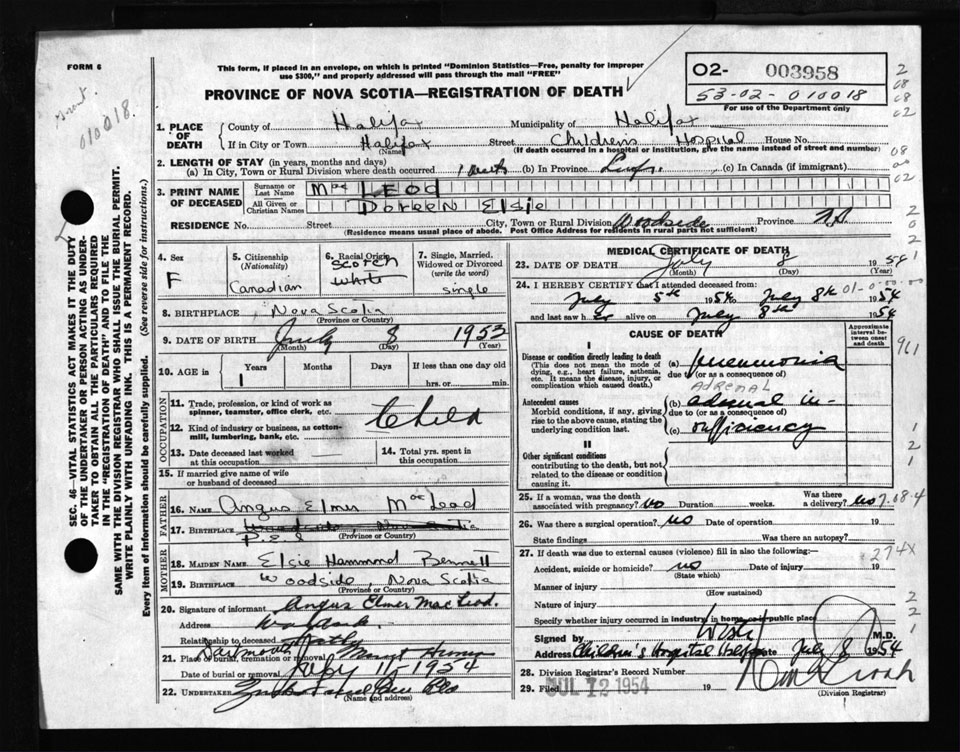 FORM 6
This form, if placed in an envelope, on which is printed "Dominion Statistics—Free, penalty for improper
use $300," and properly addressed will pass through the mail "FREE"
PROVINCE OF NOVA SCOTIA—REGISTRATION OF DEATH
O2- 003958
53-02-010018
For use of the Department only
010018
1. PLACE OF DEATH
County of Halifax Municipality of Halifax
If in City or Town Halifax Street Children's Hospital House No.
(Name) (If death occurred in a hospital or institution, give the name instead of street and number)
2. LENGTH OF STAY (in years, months and days)
(a) In City, Town or Rural Division where death occurred (b) In Province Life, (c) In Canada (if immigrant)
3. PRINT NAME OF DECEASED
Surname or Last Name Mac LEOD
All Given or Christian Names DOREEN Elsie
RESIDENCE No. Street City, Town or Rural Division Woodside Province N.S
(Residence means usual place of abode. Post Office Address for residents in rural parts not sufficient)
4. Sex F
5. Citizenship (Nationality) Canadian
6. Racial Origin SCOTCH White
7. Single, Married, Widowed or Divorced (write the word) Single
8. BIRTHPLACE Nova Scotia
(Province or Country)
9. DATE OF BIRTH July 8 1953
(Month) (Day) (Year)
10. AGE in Years Months Days If less than one day old
1 hrs. or min.
OCCUPATION
11. Trade, profession, or kind of work as spinner, teamster, office clerk, etc.
Child
12. Kind of industry or business, as cotton-mill, lumbering, bank, etc.
13. Date deceased last worked at this occupation
14. Total yrs. spent in this occupation
15. If married give name of wife or husband of deceased
FATHER
16. NAME Angus Elmer MacLeod
17. BIRTHPLACE Woodside, Nova Scotia
P.E.I (Province or Country)
MOTHER
18. MAIDEN NAME Elsie Hammond Bennett
19. BIRTHPLACE Woodside, Nova Scotia
(Province or Country)
20. Signature of informant Angus Elmer MacLeod.
Address
Relationship to deceased Father
21. Place of burial, cremation or removal Dartmouth Mount Hermon
Date of burial or removal July 11 - 1954
22. UNDERTAKER
(Name and address)
MEDICAL CERTIFICATE OF DEATH
23. DATE OF DEATH July 8 1954
(Month) (Day) (Year)
24. I HEREBY CERTIFY that I attended deceased from:
July 5th 1954 to July 8th 1954
and last saw her alive on July 8th 1954
CAUSE OF DEATH
Approximate interval between onset and death
I
Disease or condition directly leading to death (a) Pneumonia
(This does not mean the mode of dying, e.g., heart failure, asthenia, etc. It means the disease, injury, or complication which caused death.)
due to (or as a consequence of)
ADRENAL
Antecedent causes (b) adrenal in-
Morbid conditions, if any, giving rise to the above cause, stating the underlying condition last.
due to (or as a consequence of)
(c) sufficiency
II
Other significant conditions
contributing to the death, but not related to the disease or condition causing it.
25. If a woman, was the death associated with pregnancy? no Duration weeks. Was there a delivery? no
26. Was there a surgical operation? no Date of operation 19
State findings Was there an autopsy?
27. If death was due to external causes (violence) fill in also the following:—
274X
Accident, suicide or homicide? no Date of injury 19
(State which)
Manner of injury
(How sustained)
Nature of injury
Specify whether injury occurred in industry, in home, or in public place
Signed by M.D.
Address Children's Hospital Halifax Date July 8 1954
28. Division Registrar's Record Number
29. Filed JUL 12 1954
(Division Registrar)
SEC. 46—VITAL STATISTICS ACT MAKES IT THE DUTY
OF THE UNDERTAKER OR PERSON ACTING AS UNDER-
TAKER TO OBTAIN ALL THE PARTICULARS REQUIRED
IN THE "REGISTRATION OF DEATH" AND TO FILE THE
SAME WITH THE DIVISION REGISTRAR WHO SHALL ISSUE THE BURIAL PERMIT.
WRITE PLAINLY WITH UNFADING INK. THIS IS A PERMANENT RECORD.
Every item of information should be carefully supplied. (See reverse side for instructions.)